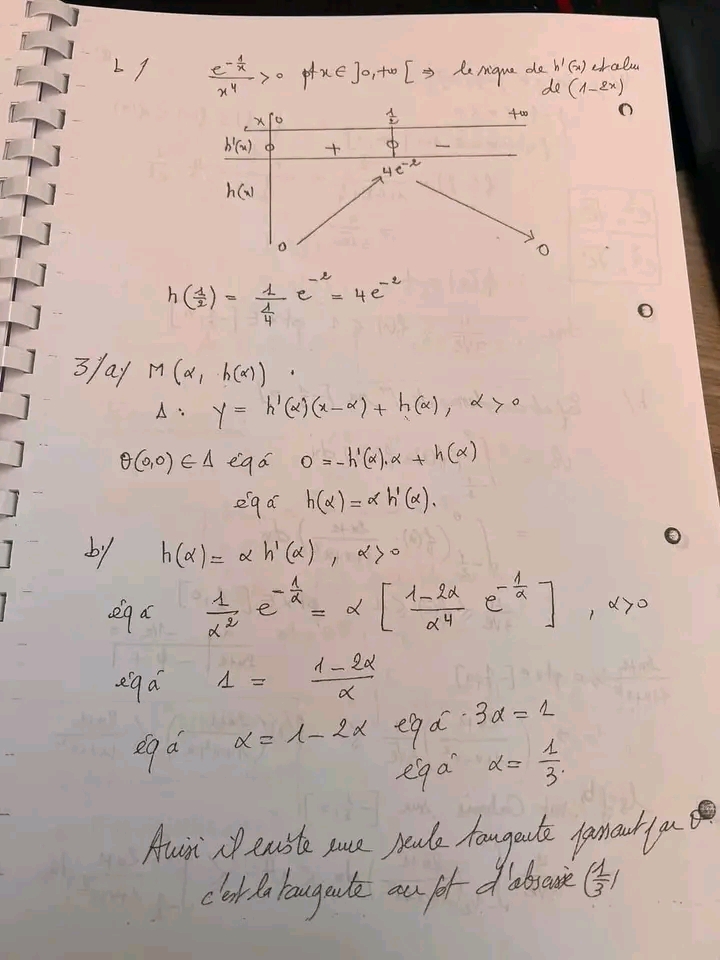 b/ e^{-1/x}/x⁴ > 0 pt x ∈ ]0, +∞[ ⇒ le signe de h'(x) est celui
de (1-2x)
x 0 1/2 +∞
h'(x) 0 + 0 -
h(x) 0 ↗ 4e⁻² ↘ 0
h(1/2) = 1/(1/4) e⁻² = 4e⁻²
3/a/ M(α, h(α)).
Δ: y = h'(α)(x-α) + h(α), α>0
O(0,0) ∈ Δ éq à 0 = -h'(α).α + h(α)
éq à h(α) = α h'(α).
b/ h(α) = α h'(α), α>0
éq à 1/α² e^{-1/α} = α [ (1-2α)/α⁴ e^{-1/α} ], α>0
éq à 1 = (1-2α)/α
éq à α = 1-2α éq à 3α = 1
éq à α = 1/3.
Ainsi il existe une seule tangente passant par O.
c'est la tangente au pt d'abscisse (1/3)